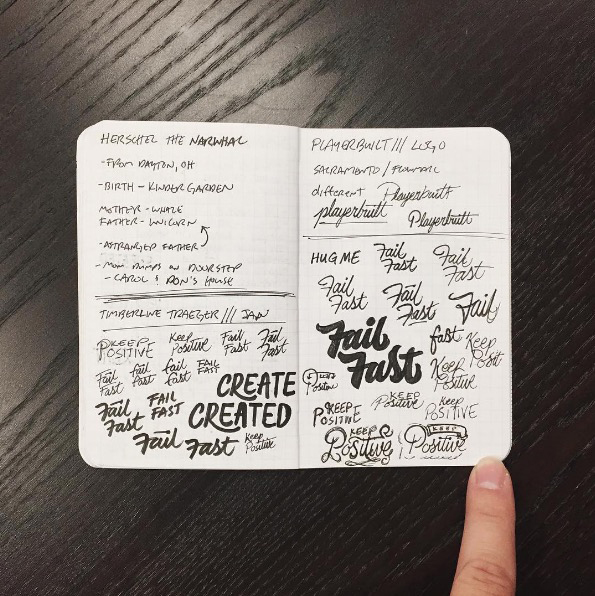 HERSCHEL THE NARWHAL
-FROM DAYTON, OH
-BIRTH - KINDERGARDEN
MOTHER - WHALE
FATHER - UNICORN
-ASTRANGED FATHER
-MOM DUMPS ON DOORSTEP
- CAROL & DON'S HOUSE
TIMBERLINE TRAEGER /// JAN
KEEP POSITIVE
Keep Positive
Fail Fast
Fail Fast
Fail Fast
fail fast
fail fast
FAIL FAST
CREATE
CREATED
Fail Fast
FAIL FAST
Fail Fast
Keep Positive
PLAYERBUILT /// LOGO
SACRAMENTO /
different Playerbuilt
playerbuilt Playerbuilt
HUG ME
Fail Fast
Fail Fast
Fail Fast
Fail Fast
Fail
Fail Fast
fast
Keep Posit
Keep Positive
Positive
KEEP POSITIVE
KEEP Positive
KEEP POSITIVE
KEEP Positive
KEEP Positive